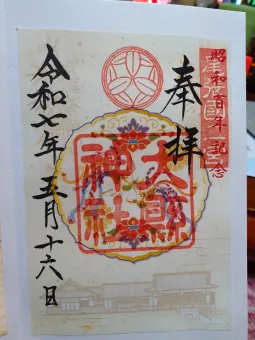 昭和百年記念
奉拝
大縣
神社
令和七年五月十六日